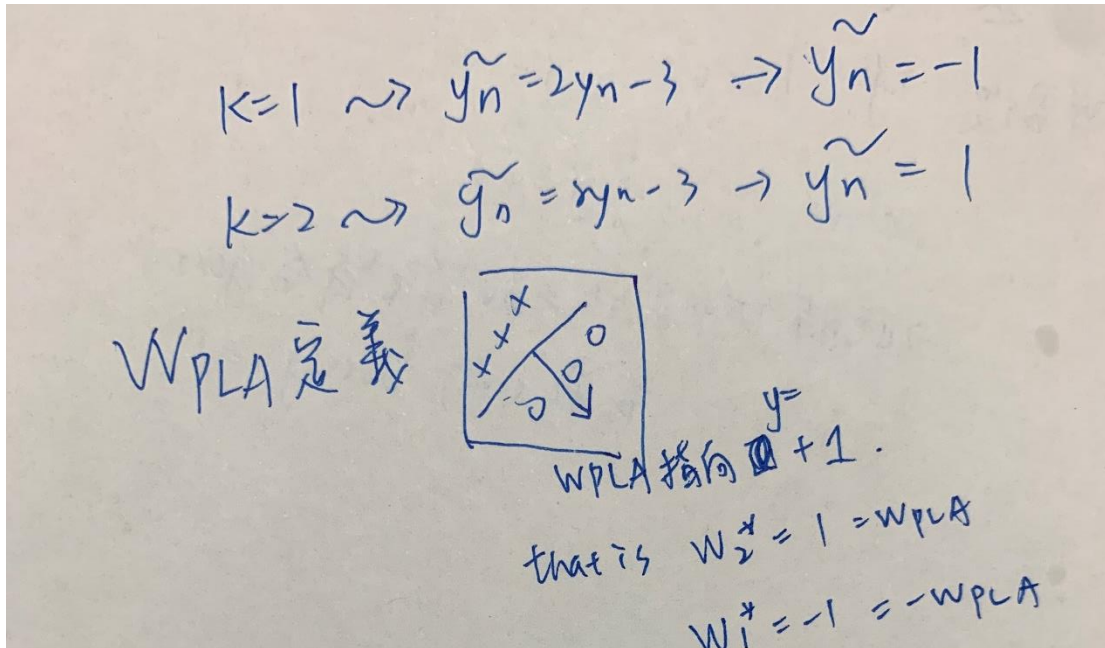 k=1 ~> ỹn=2yn-3 → ỹn=-1
k=2 ~> ỹn=2yn-3 → ỹn=1
WPLA定義
y=
WPLA指向 +1.
that is W₂*=1=WPLA
W₁*=-1=-WPLA